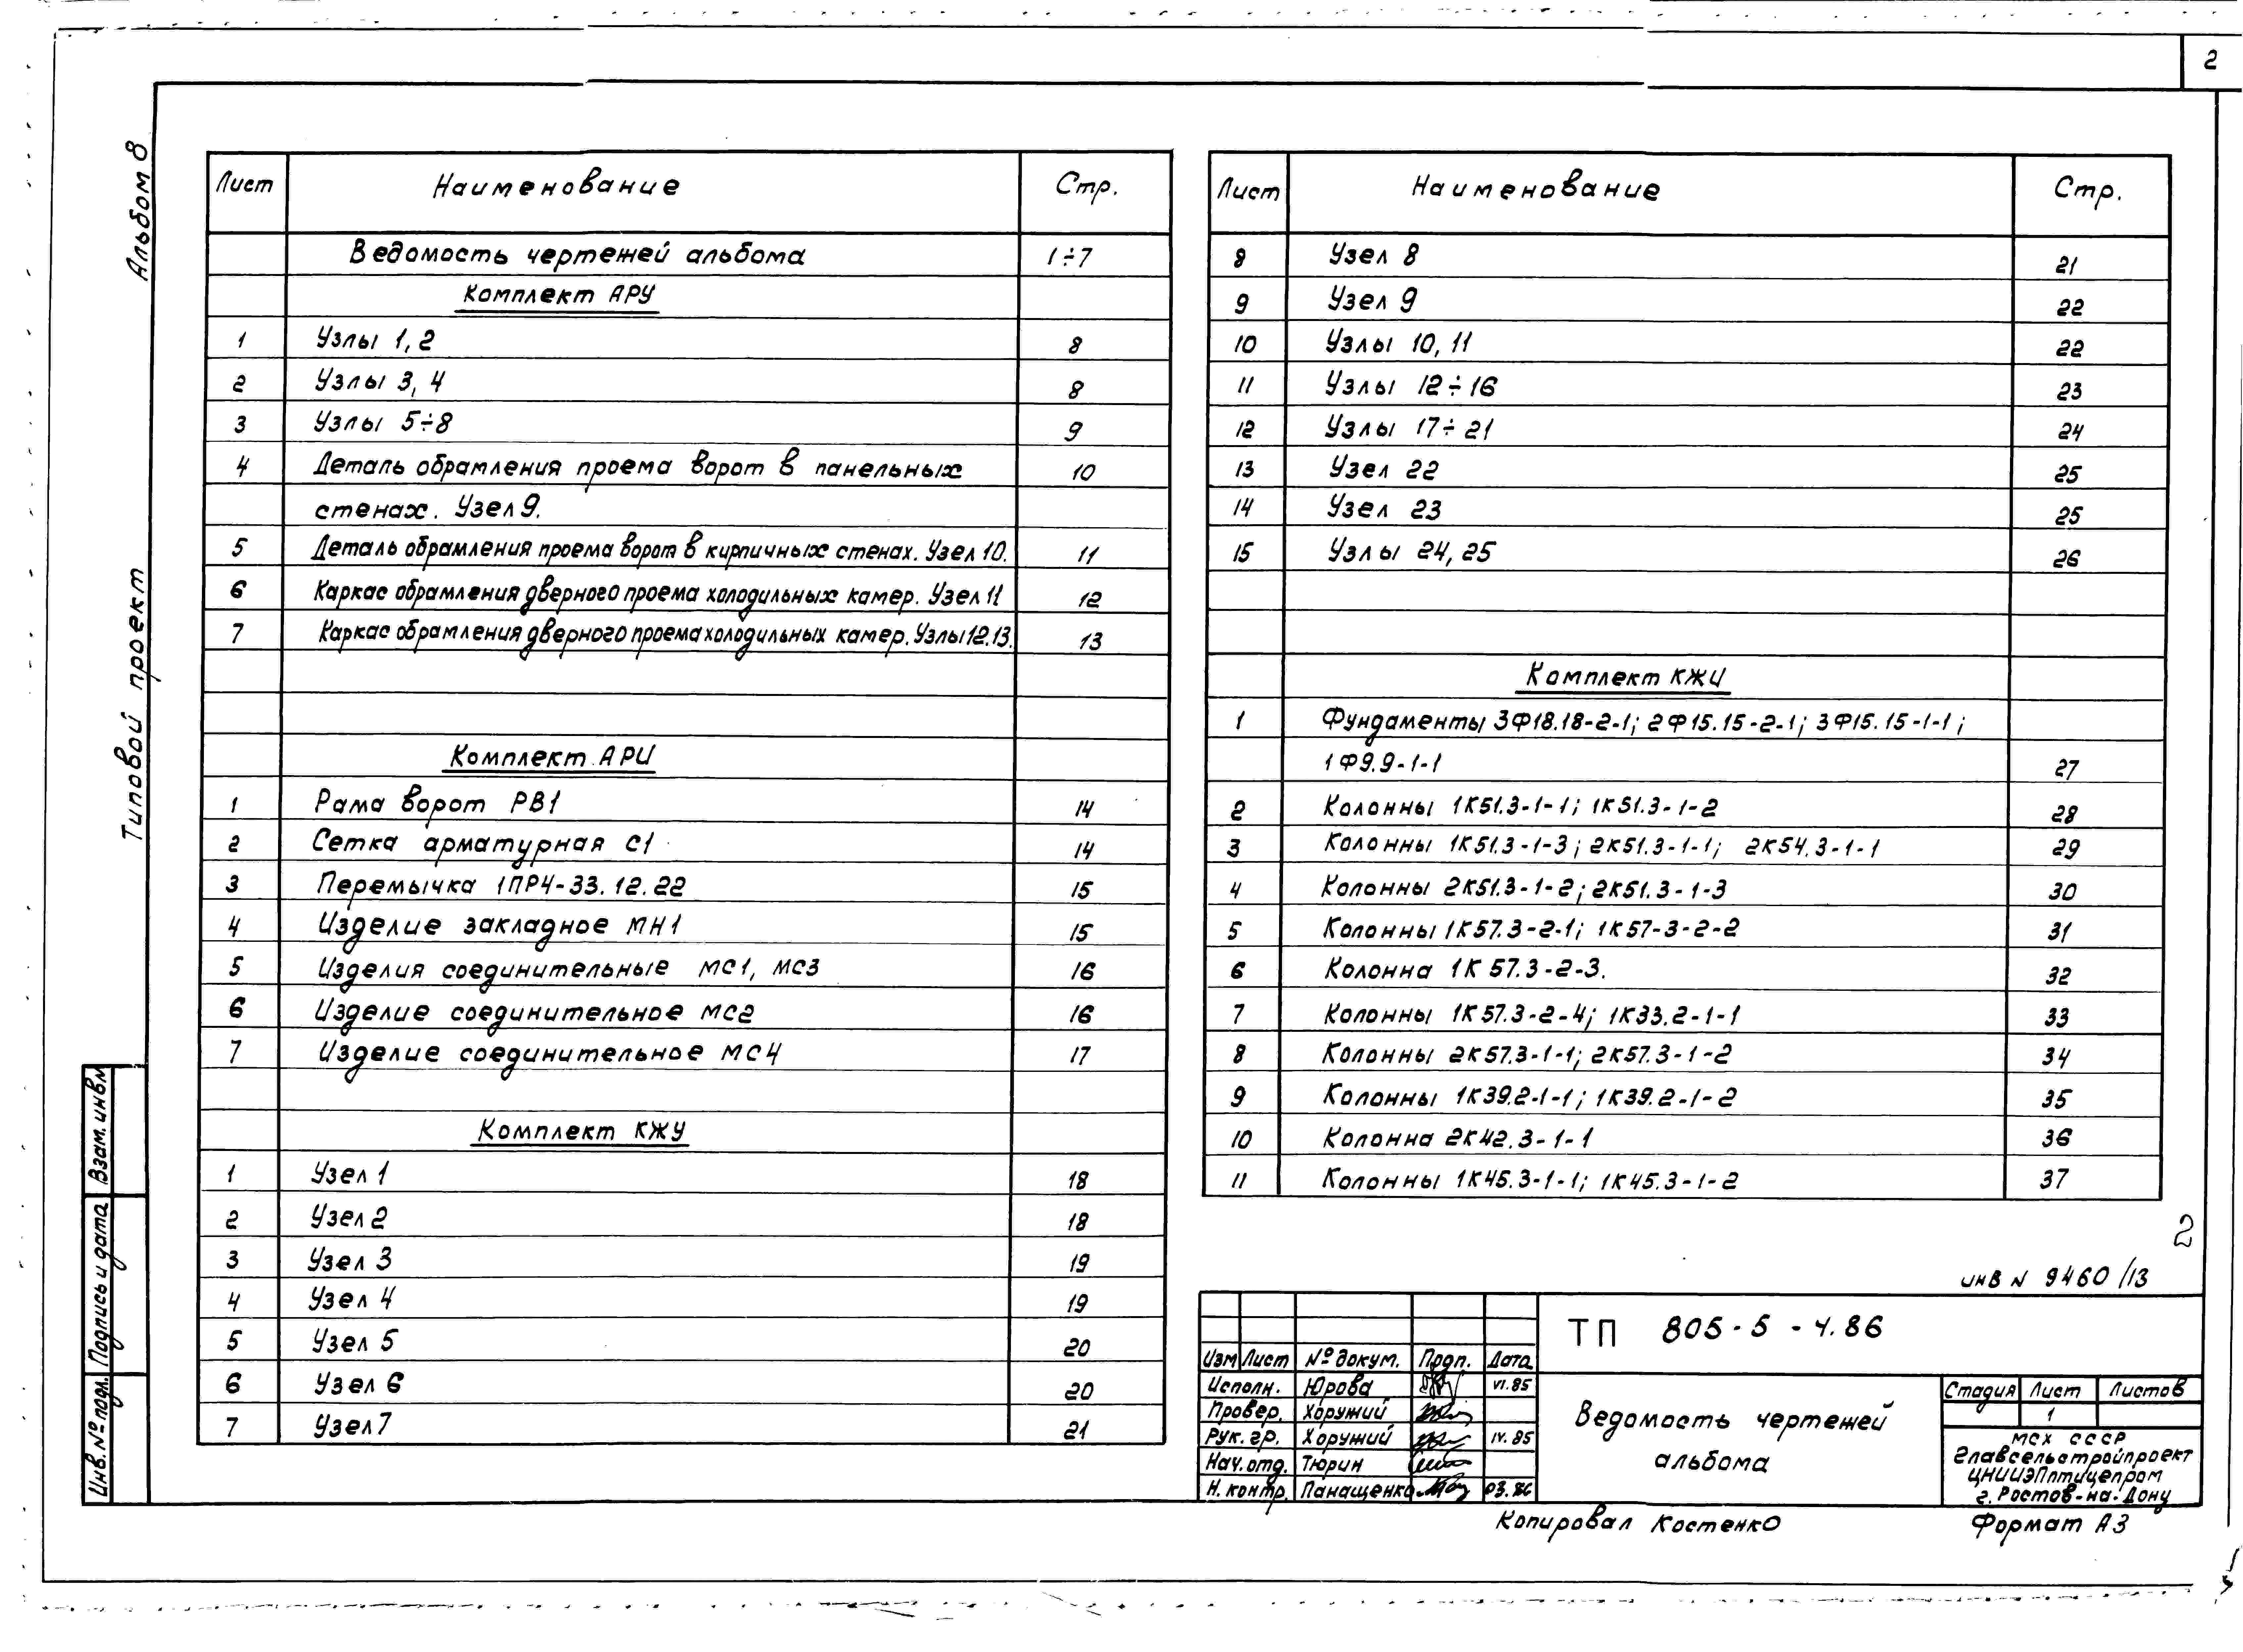 2
Альбом 8
Типовой проект
Лист Наименование Стр.
Ведомость чертежей альбома 1÷7
Комплект АРУ
1 Узлы 1, 2 8
2 Узлы 3, 4 8
3 Узлы 5÷8 9
4 Деталь обрамления проема ворот в панельных 10
стенах. Узел 9.
5 Деталь обрамления проема ворот в кирпичных стенах. Узел 10. 11
6 Каркас обрамления дверного проема холодильных камер. Узел 11 12
7 Каркас обрамления дверного проема холодильных камер. Узлы 12.13. 13
Комплект АРИ
1 Рама ворот РВ1 14
2 Сетка арматурная С1 14
3 Перемычка 1ПР4-33.12.22 15
4 Изделие закладное МН1 15
5 Изделия соединительные МС1, МС3 16
6 Изделие соединительное МС2 16
7 Изделие соединительное МС4 17
Комплект КЖУ
1 Узел 1 18
2 Узел 2 18
3 Узел 3 19
4 Узел 4 19
5 Узел 5 20
6 Узел 6 20
7 Узел 7 21
Лист Наименование Стр.
8 Узел 8 21
9 Узел 9 22
10 Узлы 10, 11 22
11 Узлы 12÷16 23
12 Узлы 17÷21 24
13 Узел 22 25
14 Узел 23 25
15 Узлы 24, 25 26
Комплект КЖИ
1 Фундаменты 3Ф18.18-2-1; 2Ф15.15-2-1; 3Ф15.15-1-1;
1Ф9.9-1-1 27
2 Колонны 1К51.3-1-1; 1К51.3-1-2 28
3 Колонны 1К51.3-1-3; 2К51.3-1-1; 2К54.3-1-1 29
4 Колонны 2К51.3-1-2; 2К51.3-1-3 30
5 Колонны 1К57.3-2-1; 1К57-3-2-2 31
6 Колонна 1К57.3-2-3. 32
7 Колонны 1К57.3-2-4; 1К33.2-1-1 33
8 Колонны 2К57.3-1-1; 2К57.3-1-2 34
9 Колонны 1К39.2-1-1; 1К39.2-1-2 35
10 Колонна 2К42.3-1-1 36
11 Колонны 1К45.3-1-1; 1К45.3-1-2 37
2
инв N 9460/13
ТП 805-5-4.86
Изм Лист № докум. Подп. Дата
Исполн. Юрова VI.85
Провер. Хоружий
Рук. гр. Хоружий IV.85
Нач. отд. Тюрин
Н. контр. Панащенко 03.86
Ведомость чертежей
альбома
Стадия Лист Листов
1
МСХ СССР
Главсельстройпроект
ЦНИИЭПптицепром
г. Ростов-на-Дону
Копировал Костенко
Формат А3
Взам. инв N
Подпись и дата
Инв. № подл.